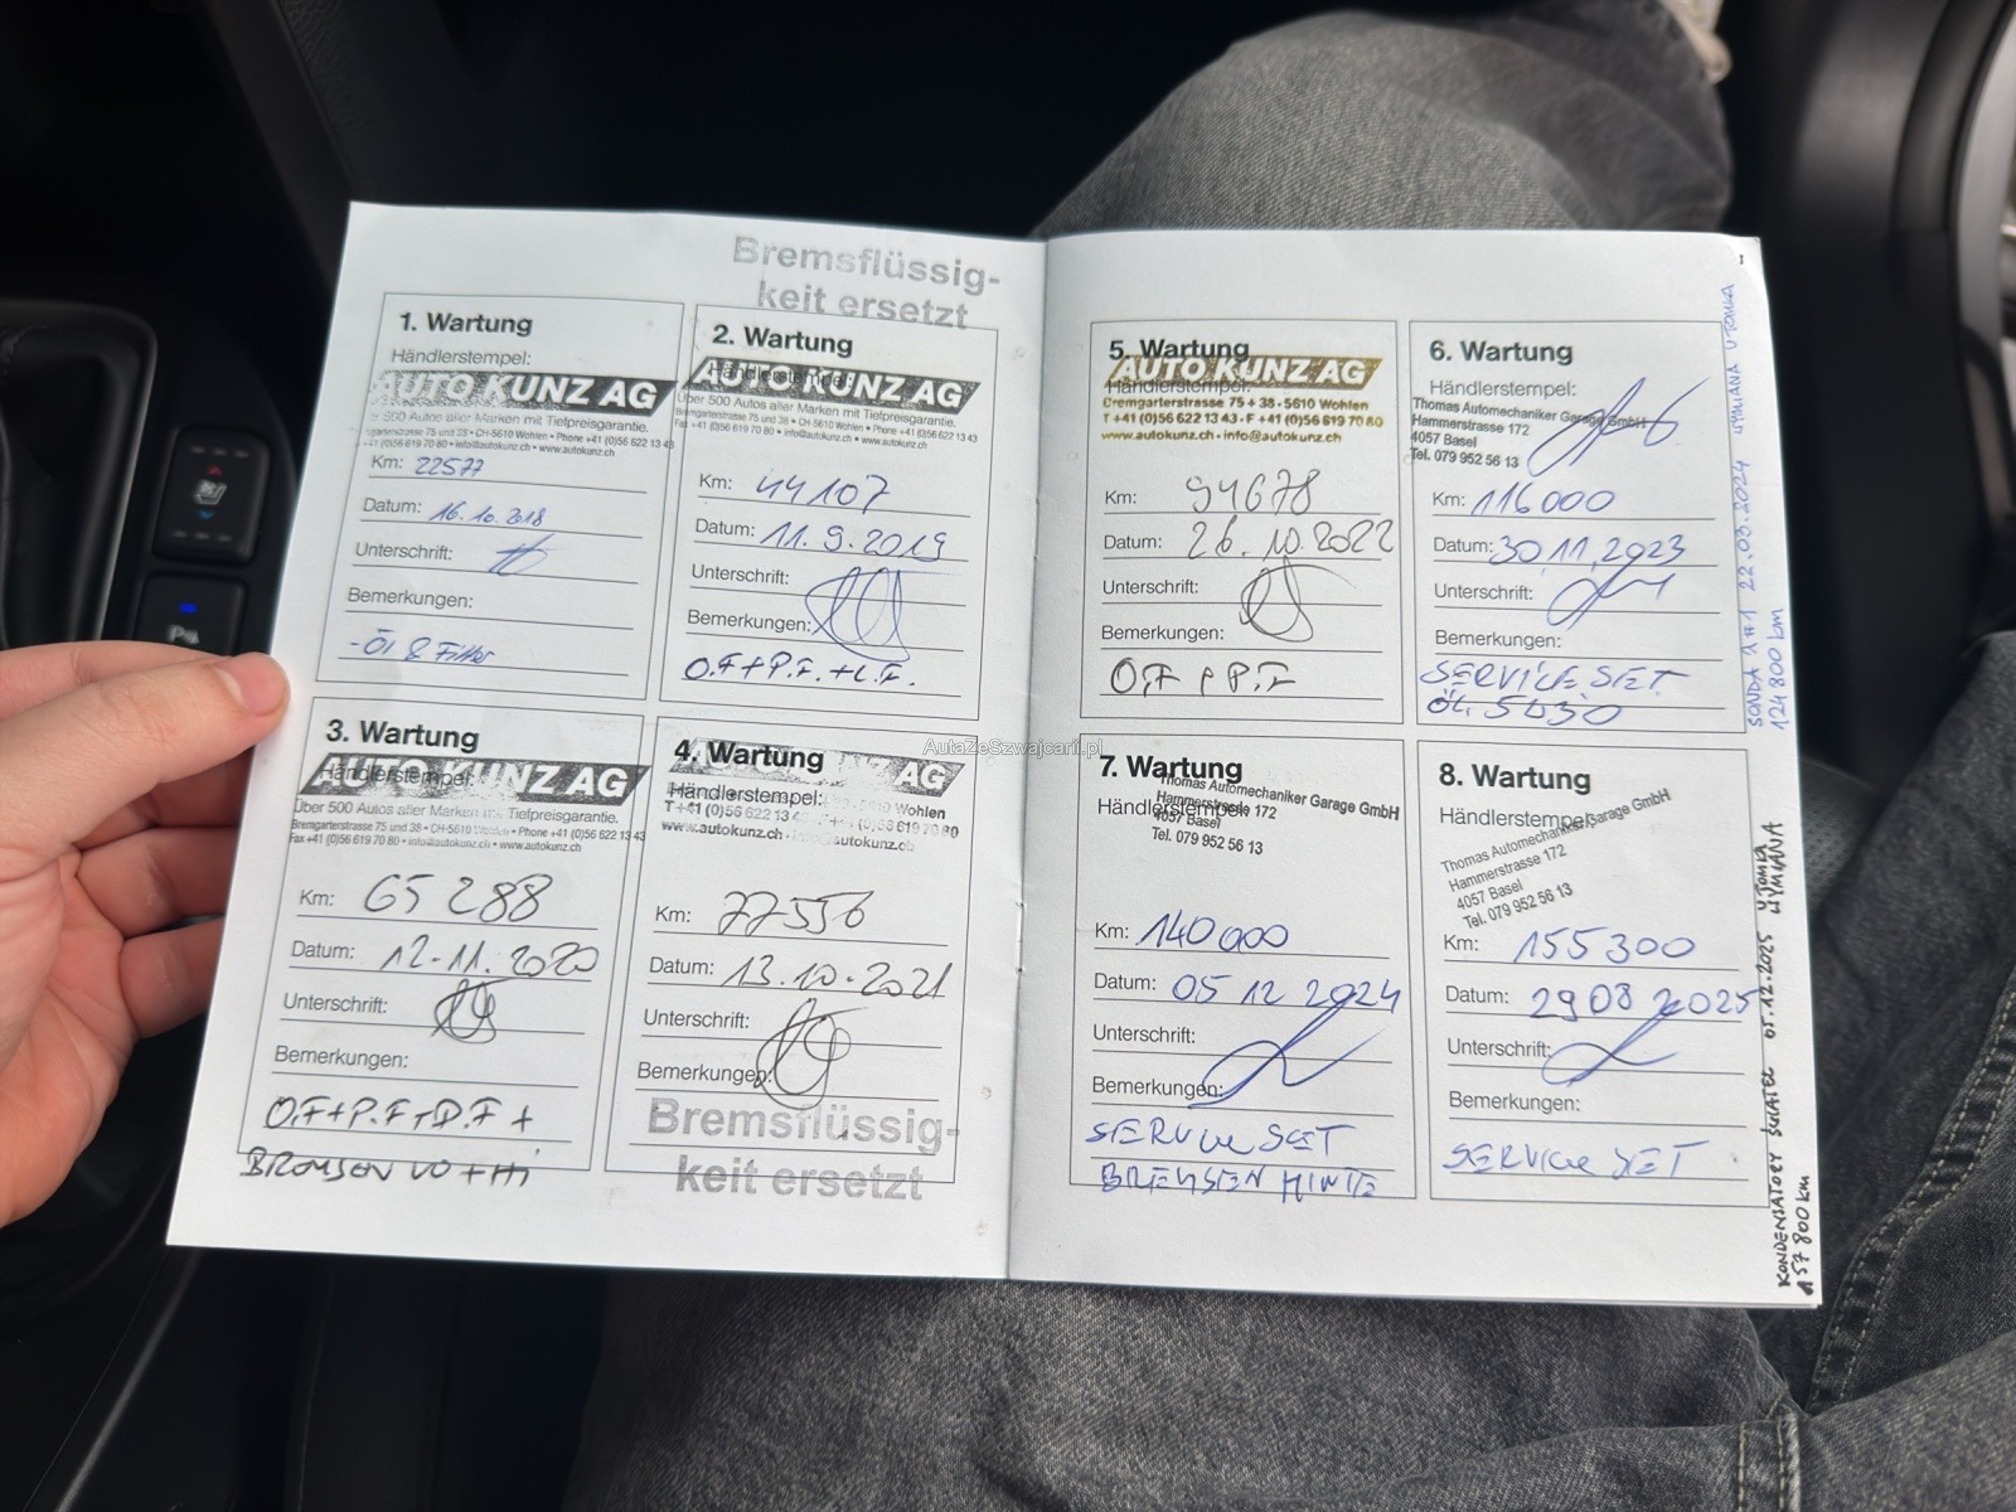 Bremsflüssig-
keit ersetzt
1. Wartung
Händlerstempel:
AUTO KUNZ AG
500 Autos aller Marken mit Tiefpreisgarantie.
75 und 38 • CH-5610 Wohlen • Phone +41 (0)56 622 13 43
+41 (0)56 619 70 80 • info@autokunz.ch • www.autokunz.ch
Km: 22577
Datum: 16.10.2018
Unterschrift:
Bemerkungen:
- Öl & Filter
2. Wartung
Händlerstempel:
AUTO KUNZ AG
Über 500 Autos aller Marken mit Tiefpreisgarantie.
Bremgartenstrasse 75 und 38 • CH-5610 Wohlen • Phone +41 (0)56 622 13 43
Fax +41 (0)56 619 70 80 • info@autokunz.ch • www.autokunz.ch
Km: 44107
Datum: 11.9.2019
Unterschrift:
Bemerkungen:
O.F+P.F.+L.F.
3. Wartung
Händlerstempel:
AUTO KUNZ AG
Über 500 Autos aller Marken mit Tiefpreisgarantie.
Bremgarterstrasse 75 und 38 • CH-5610 Wohlen • Phone +41 (0)56 622 13 43
Fax +41 (0)56 619 70 80 • info@autokunz.ch • www.autokunz.ch
Km: 65288
Datum: 12.11.2020
Unterschrift:
Bemerkungen:
O.F+P.F+D.F+
BREMSEN VO+HI
4. Wartung
KUNZ AG
Händlerstempel: 5610 Wohlen
T +41 (0)56 622 13 43 F +41 (0)56 619 70 80
www.autokunz.ch • info@autokunz.ch
Km: 77556
Datum: 13.10.2021
Unterschrift:
Bemerkungen:
Bremsflüssig-
keit ersetzt
5. Wartung
AUTO KUNZ AG
Händlerstempel:
Bremgarterstrasse 75 + 38 • 5610 Wohlen
T +41 (0)56 622 13 43 • F +41 (0)56 619 70 80
www.autokunz.ch • info@autokunz.ch
Km: 94678
Datum: 26.10.2022
Unterschrift:
Bemerkungen:
O.F + P.F
6. Wartung
Händlerstempel:
Thomas Automechaniker Garage GmbH
Hammerstrasse 172
4057 Basel
Tel. 079 952 56 13
Km: 116000
Datum: 30.11.2023
Unterschrift:
Bemerkungen:
SERVICE SET
ÖL 5W30
7. Wartung
Thomas Automechaniker Garage GmbH
Händlerstempel:
Hammerstrasse 172
4057 Basel
Tel. 079 952 56 13
Km: 140000
Datum: 05 12 2024
Unterschrift:
Bemerkungen:
SERVICE SET
BREMSEN HINTE
8. Wartung
Händlerstempel:
Thomas Automechaniker Garage GmbH
Hammerstrasse 172
4057 Basel
Tel. 079 952 56 13
Km: 155300
Datum: 29 08 2025
Unterschrift:
Bemerkungen:
SERVICE SET
SONDA 1#1 22.03.2024 WYMIANA U TOMKA
124 800 km
KONDENSATORY 05.12.2025 U TOMKA
WYMIANA
157 800 km
AutaZeSzwajcarii.pl